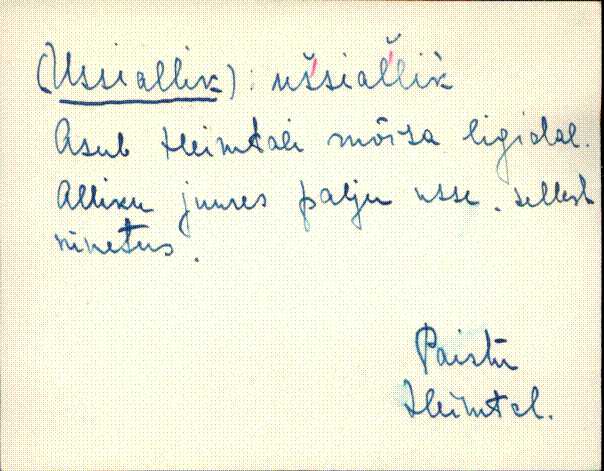 (Ussiallik): uššiaľľik
Asub Heimtali mõisa ligidal.
Alliku juures palju usse. sellest
nimetus.
Paistu
Heimtal.